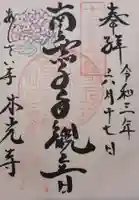 奉拝
令和二年
六月十七日
南無千手觀音
あじさい寺 本光寺